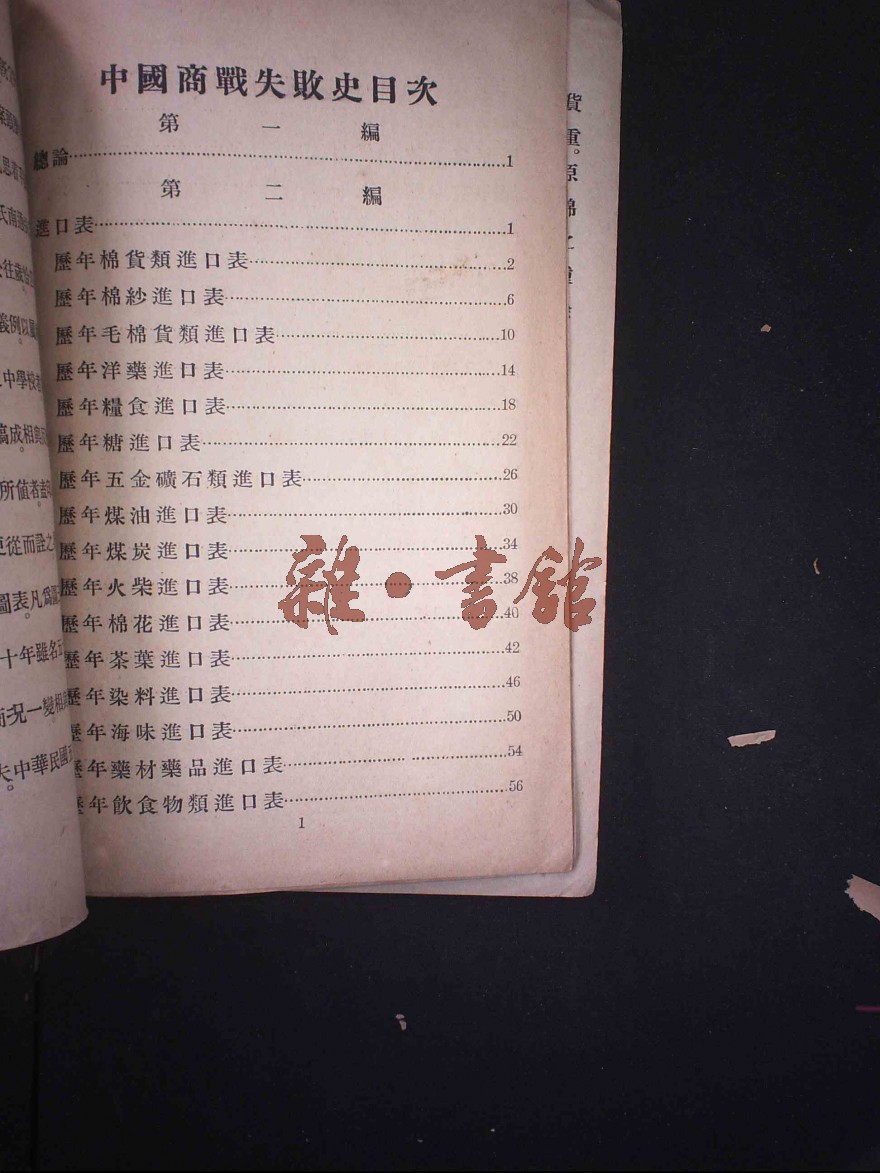 中國商戰失敗史目次
第一編
總論……1
第二編
進口表……1
歷年棉貨類進口表……2
歷年棉紗進口表……6
歷年毛棉貨類進口表……10
歷年洋藥進口表……14
歷年糧食進口表……18
歷年糖進口表……22
歷年五金礦石類進口表……26
歷年煤油進口表……30
歷年煤炭進口表……34
歷年火柴進口表……38
歷年棉花進口表……40
歷年茶葉進口表……42
歷年染料進口表……46
歷年海味進口表……50
歷年藥材藥品進口表……54
歷年飲食物類進口表……56
1
雜·書館
貨重。原棉之